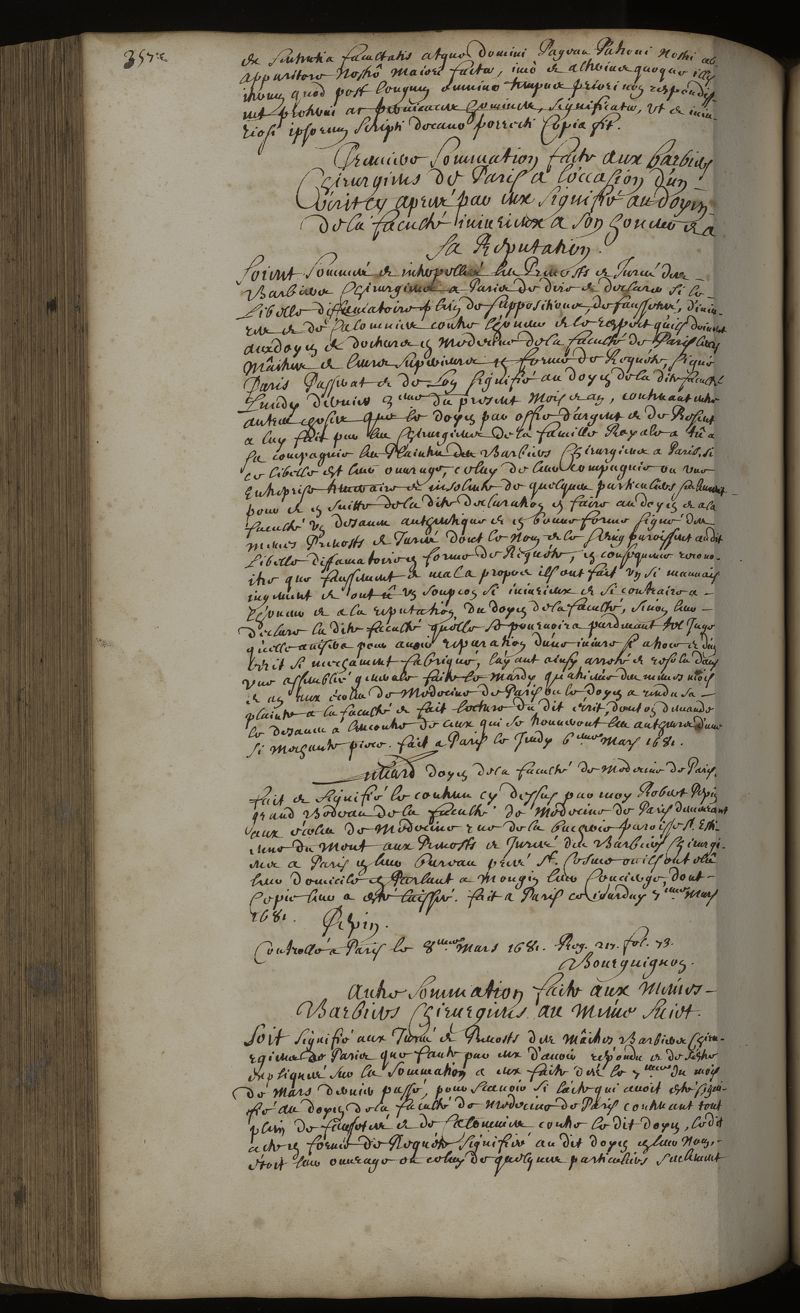 357.
de Sententia facultatis atque domini Pagvau Patroni Nostri ab
Apparitore Nostro Maiore facta, imò et alterius quoque ill
quod post longum omnino tempus priori non respondiss
significatu, ut et iniu-
riosi ipsorum Scripti decano porrecti Copia fit.
Premiere Sommation faite aux barbiers
Chirurgiens de Paris a l'occasion d'un
Ecrit par eux signifié au doyen
de la faculté iniurieux a son honneur et a
Sa Reputation.
Soient Sommés et interpellés les Prevosts et Jurés des
Barbiers Chirurgiens a Paris de dire et declarer si le
Libelle diffamatoire plein de suppositions, de faussetés, d'iniu-
res et de Calomnies contre l'honneur et le respect qu'ils doivent
aux doyen et docteurs en Medecine de la faculté de Paris leurs
Maitres et leurs Superieurs en forme de Requete, signé
Paris Passerat et de Lon signifié au doyen de la dite faculté
Lundy dernier 3eme du present Mois et an, contenant entre
autres choses que le doyen par offre d'argent et de Present
a luy fait par les Chirurgiens de la famille Royale a
Sa compagnie les Plaintes des Barbiers Chirurgiens a Paris, si
ce libelle est leur ouvrage, celuy de leur compagnie ou une
Entreprise temeraire et insolente de quelques particuliers seulement
pour et en suitte de la dite declaration en faire au doyen et a la
faculté un desaveu autentique et en bonne forme signé des
mêmes Prevosts et Jurés dont le Nom et le Seing paroissent au dit
Libelle diffamatoire en forme de Requête, en consequence recono-
itre que faussement et mal a propos ils ont fait un si mauvais
iugement et ont eu un soupçon si iniurieux et si contraire a
l'honneur et a la reputation du doyen de la faculté, sinon leur
declare la dite faculté qu'elle se pourvoira pardevant tel Juge
qu'elle avisera pour avoir reparation d'une iniure si atroce et d'un
ecrit si mechament fabriqué, l'ayant ainsy arreté et resolu dans
une assemblée generale faite le Mardy quatrieme des mêmes mois
et an aux écoles de Medecine de Paris ou le doyen a rendu sa
plainte a la faculté et fait lecture du dit écrit dont on demande
le desaveu a l'encontre de ceux qui se trouveront les autheurs d'une
si mechante piece. fait a Paris le Jeudy 6eme Mars 1681.
Lienard doyen de la faculté de Medecine de Paris.
Fait et signifié le contenu cy dessus par moy Robert Pepin
grand Bedeau de la faculté de Medecine de Paris demeurant
aux écoles de Medecine rue de la bucherie paroisse St. Esti-
enne du Mont aux Prevosts et Jurés des Barbiers Chirurgi-
ens a Paris en leur bureau pres St. Cosme ou ils ont élu
leur domicile en Parlant a Mongin leur Concierge, dont
Copie leur a esté laissée. fait a Paris ce iourdhuy 7eme Mars
1681. Pepin.
Controllé a Paris le 8eme Mars 1681. Reg. 217. fol. 73.
Bourguignon.
Autre Sommation faite aux mêmes
Barbiers Chirurgiens au même Suiet.
Soit signifié aux Jurés et Prevosts des Maitres Barbiers Chiru-
rgiens de Paris que faute par eux d'avoir repondu et de s'estre
expliqués sur la Sommation a eux faite dès le 7eme du mois
de Mars dernier passé, pour scavoir si l'acte qui avoit esté signi-
fié au doyen de la faculté de Medecine de Paris contenant tout
plein de faussetés et de Calomnies contre le dit doyen, le dit
acte en forme de Requête signifié au dit doyen en leur Nom,
étoit leur ouvrage ou celuy de quelques particuliers seulement